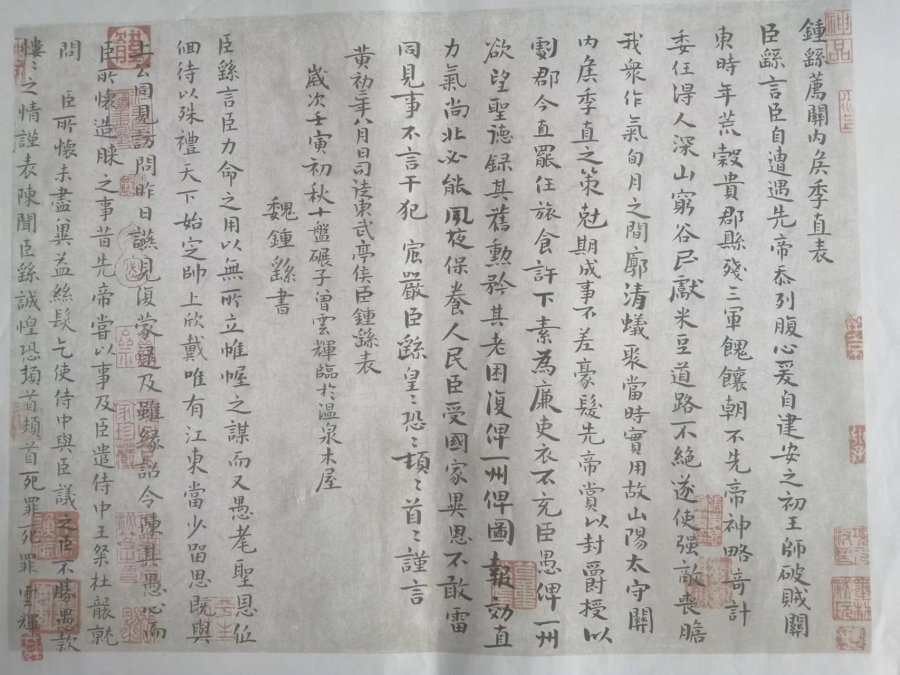 鍾繇薦關內矦季直表
臣繇言臣自遭遇先帝忝列腹心爰自建安之初王師破賊關
東時年荒穀貴郡縣殘三軍餽饟朝不先帝神略奇計
委任得人深山窮谷民獻米豆道路不絕遂使强敵喪膽
我衆作氣旬月之間廓清蟻聚當時實用故山陽太守關
內矦季直之策尅期成事不差豪髮先帝賞以封爵授以
劇郡今直罷任旅食許下素為廉吏衣不充臣愚俾一州
欲望聖德錄其舊勳矜其老困復俾一州俾圖報効直
力氣尚北必能夙夜保養人民臣受國家異恩不敢雷
同見事不言干犯宸嚴臣繇皇〻恐〻頓〻首〻謹言
黃初二年八月日司法東武亭侯臣鍾繇表
嵗次壬寅初秋十盤碾子曾雲輝臨於溫泉木屋
魏鍾繇書
臣繇言臣力命之用以無所立惟幄之謀而又愚耄聖恩伍
佪待以殊禮天下始定帥上欣戴唯有江東當少留思既與
上公同見訪問昨日讌見復蒙逮及雖緣詔令陳其愚心而
臣所懷造膝之事昔先帝嘗以事及臣遣侍中王粲杜襲就
問臣所懷未盡冀益絲髮乞使侍中與臣議之臣不勝愚款
慺〻之情謹表陳聞臣繇誠惶恐頓首頓首死罪死罪雲輝